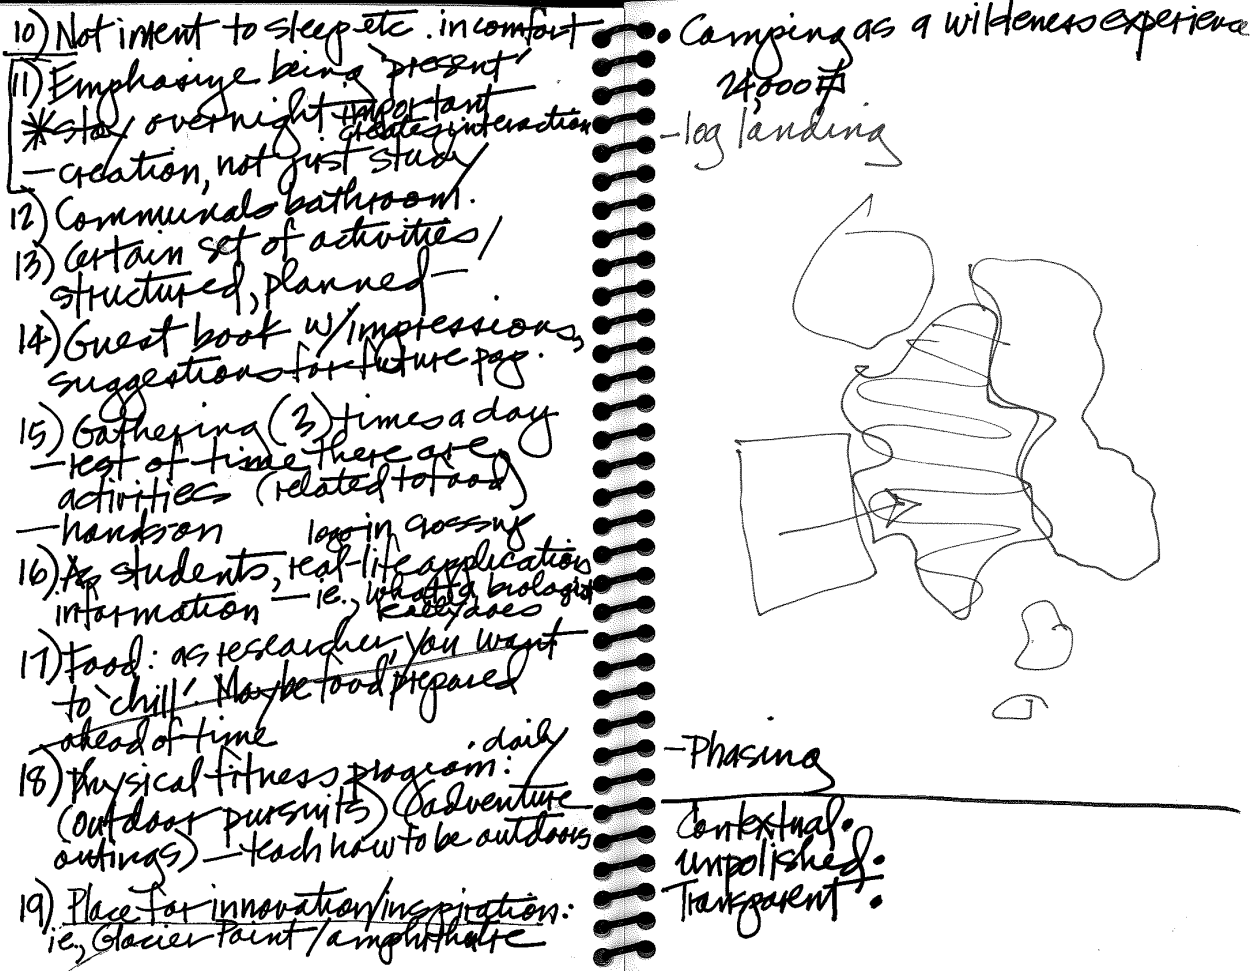 10) Not intent to sleep etc. in comfort
11) Emphasize being 'present'
*stay overnight important
creates interaction
— creation, not just study
12) Communal bathroom.
13) Certain set of activities/
structured, planned —
14) Guest book w/impressions,
suggestions for future pgg.
15) Gathering (3) times a day
— rest of time there are
activities (related to food)
— hands on
in crossing
16) As students, real-life application
information — ie., what a biologist
really does
17) Food: as researcher, you want
to 'chill'. Maybe food prepared
ahead of time
. daily
18) Physical fitness program:
(outdoor pursuits) (adventure
outings) — teach how to be outdoors
19) Place for innovation/inspiration:
ie., Glacier Point/amphitheatre
• Camping as a wilderness experience
24,000
- log landing
- Phasing
Contextual.
unpolished.
Transparent.